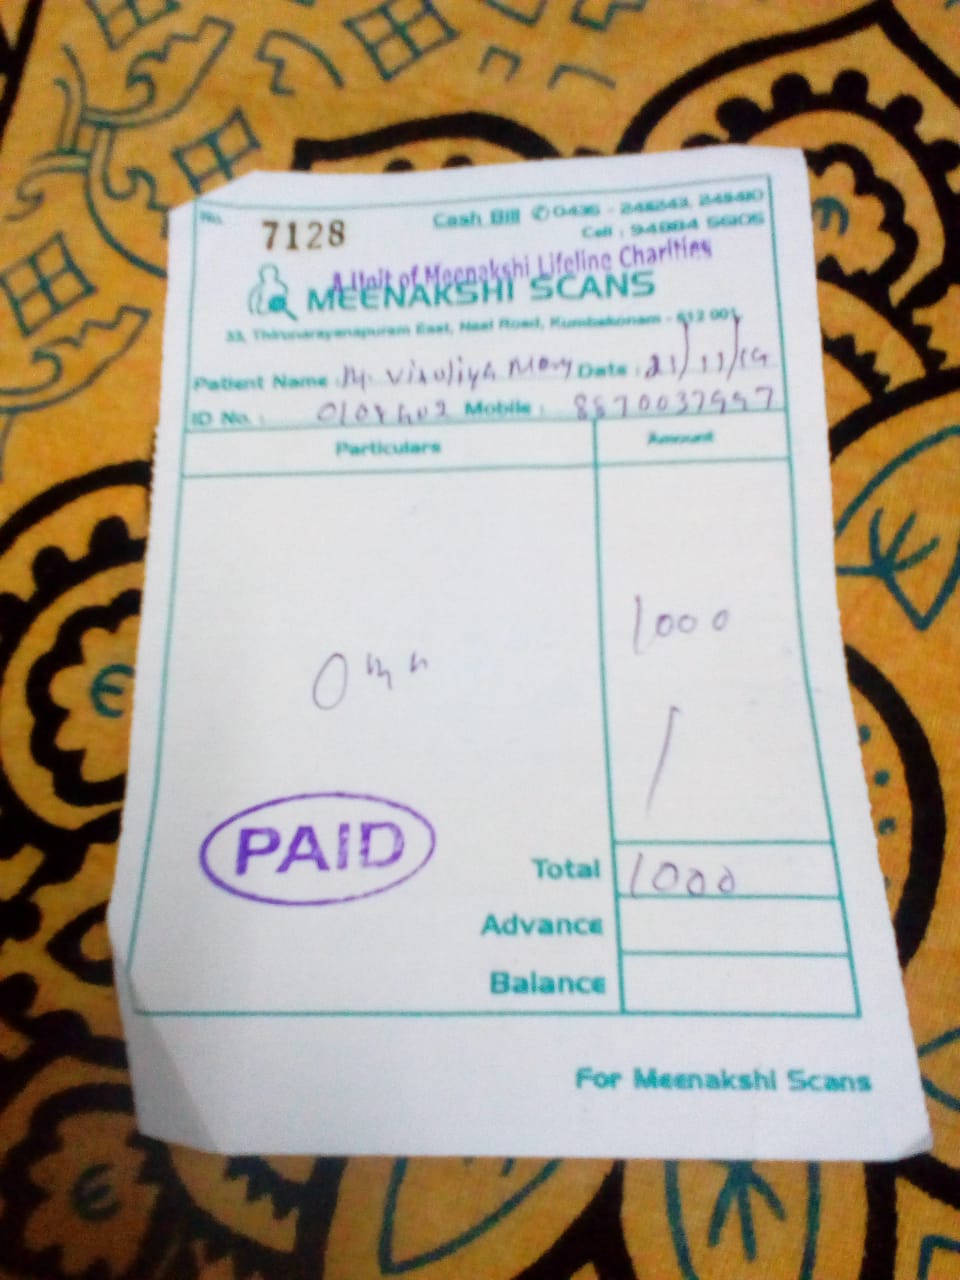 No. 7128 Cash Bill ✆ 0435 -
Cell : 94884 56105
A Unit of Meenakshi Lifeline Charities
MEENAKSHI SCANS
33, Thirunarayanapuram East, Naal Road, Kumbakonam - 612 001.
Patient Name : M. Mary Date : 21/11/19
ID No. : Mobile :
Particulars Amount
1000
PAID
Total 1000
Advance
Balance
For Meenakshi Scans